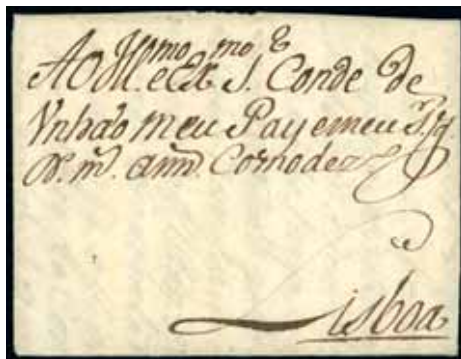 Ao Ill.mo e Ex.mo S. Conde de
Unhão meu Pay e meu S.r g.
D. m. ann. Como dez.
Lisboa